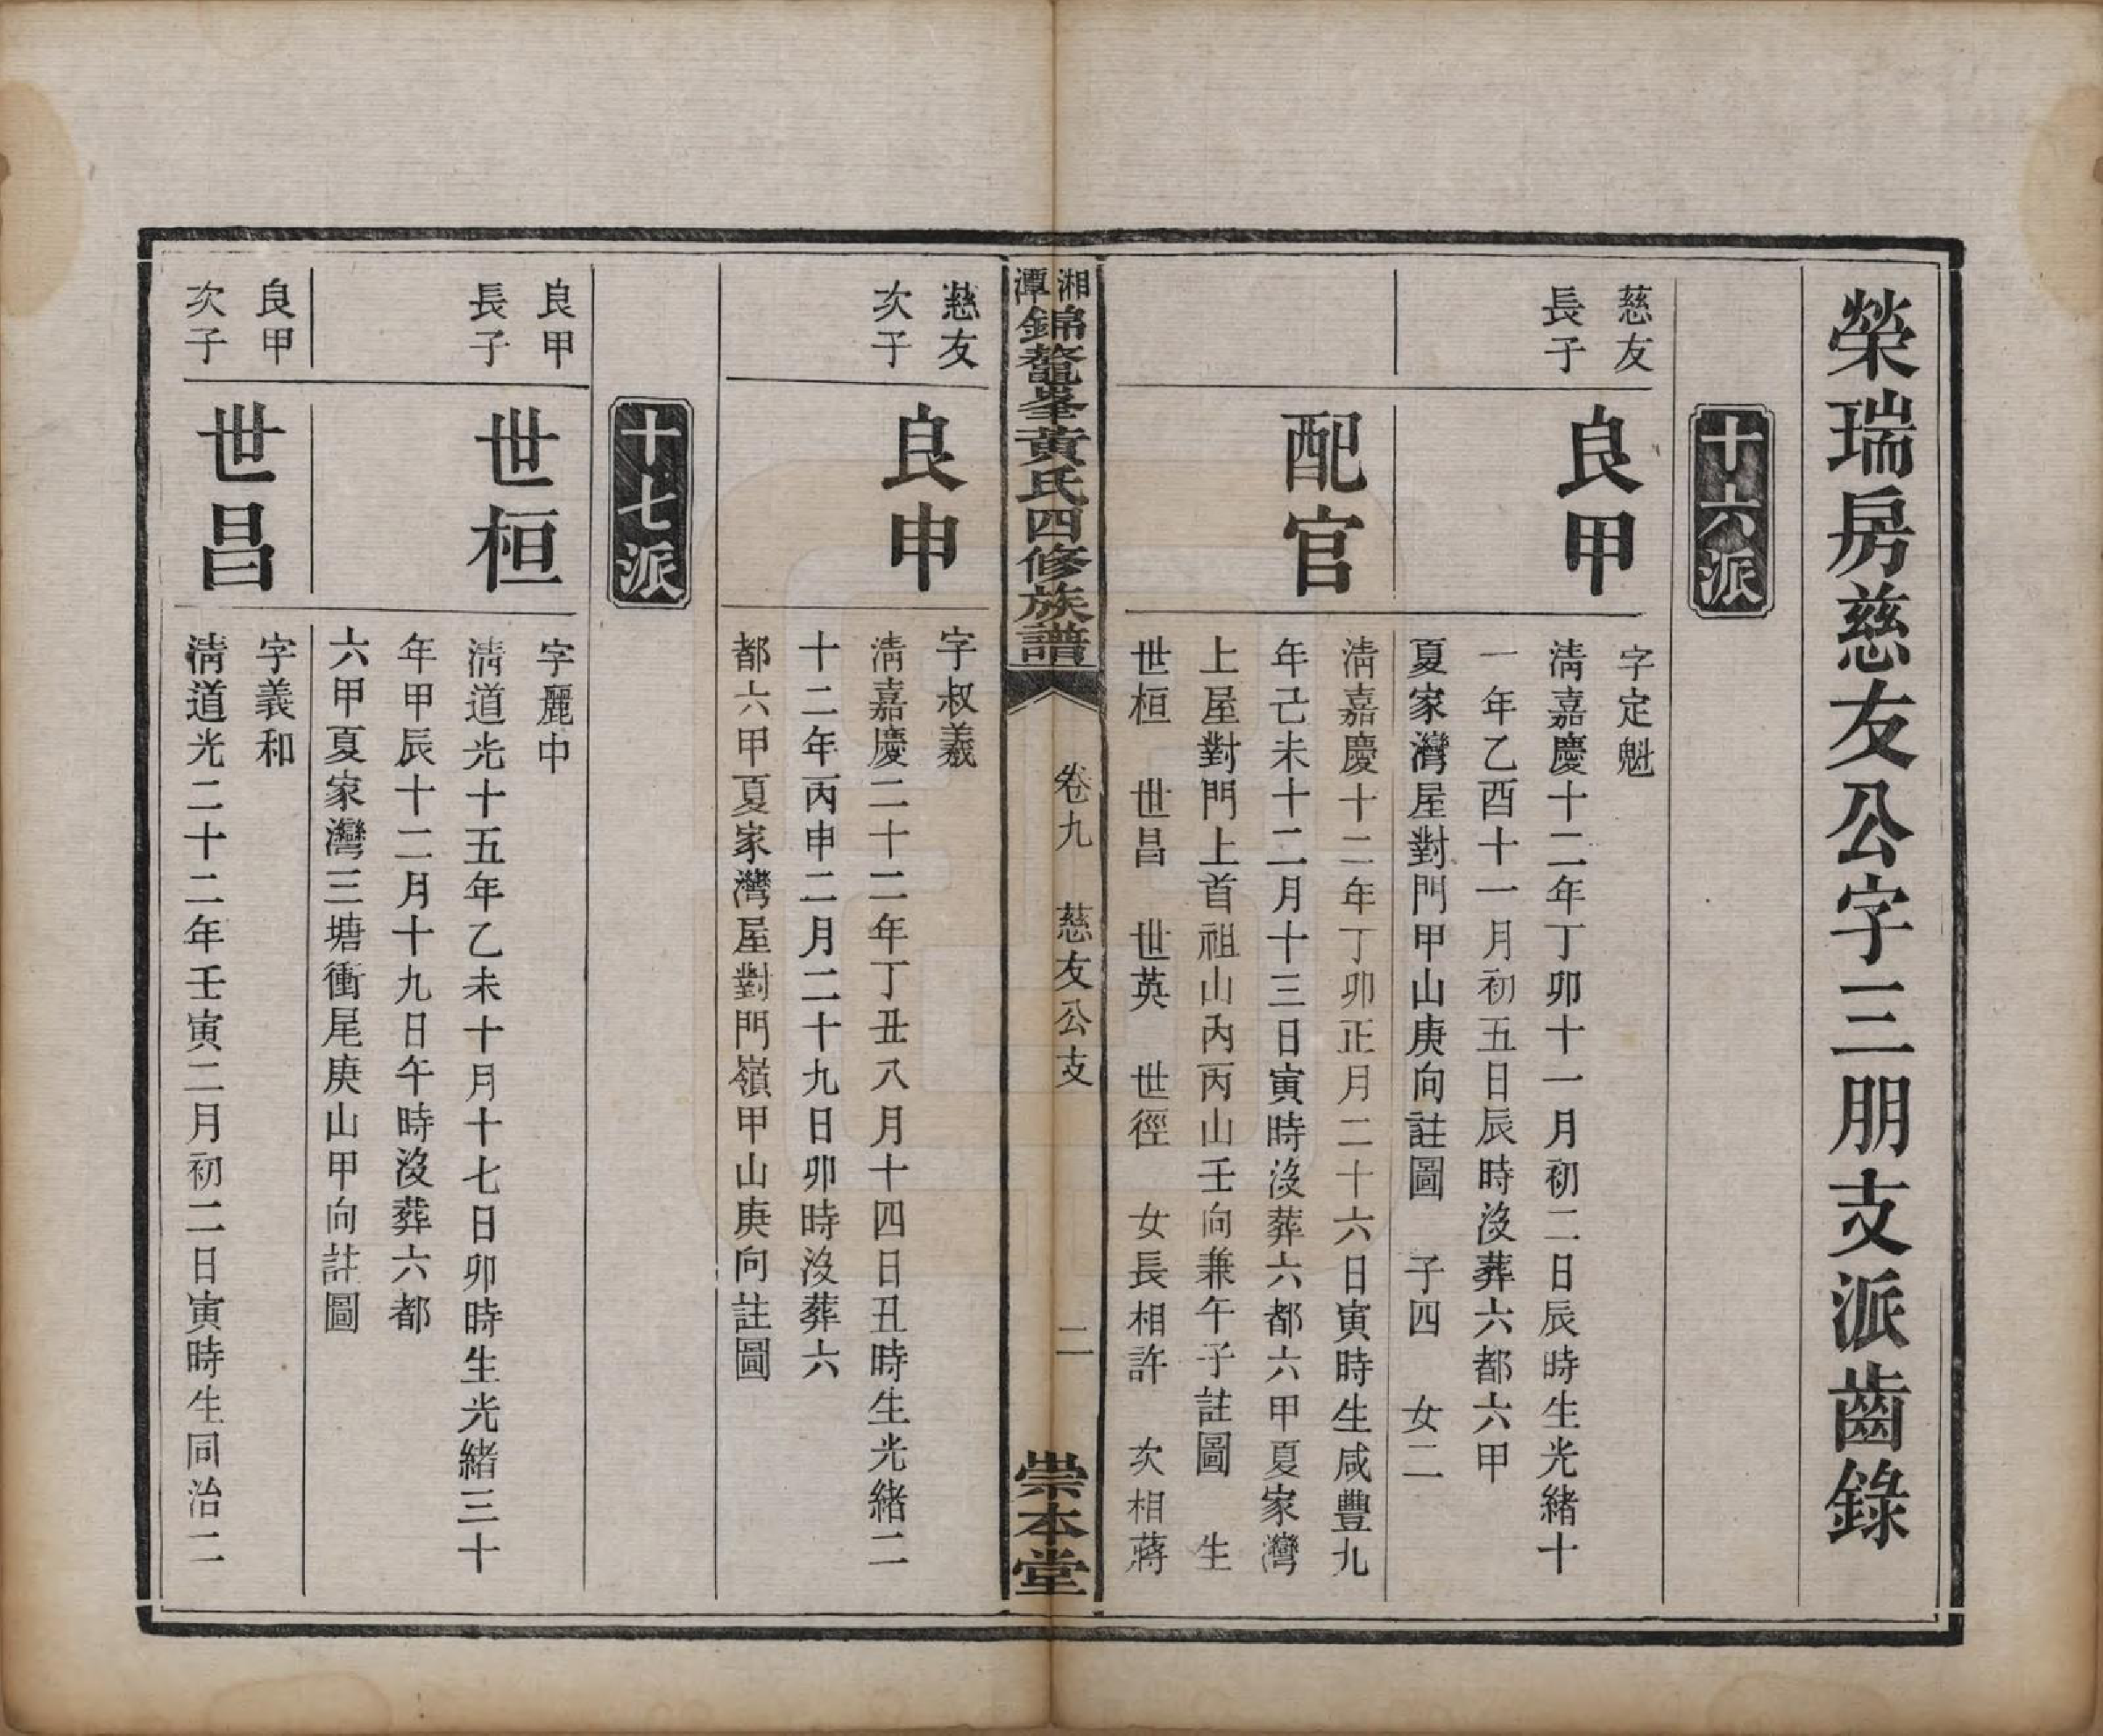 榮瑞房慈友公字三朋支派齒錄
十六派
慈友
長子
良甲
字定魁
清嘉慶十二年丁卯十一月初二日辰時生光緒十
一年乙酉十一月初五日辰時沒葬六都六甲
夏家灣屋對門甲山庚向註圖 子四 女二
配官
清嘉慶十二年丁卯正月二十六日寅時生咸豐九
年己未十二月十三日寅時沒葬六都六甲夏家灣
上屋對門上首祖山內丙山壬向兼午子註圖 生
世桓 世昌 世英 世徑 女長相許 次相蔣
湘潭錦鰲峯黃氏四修族譜
卷九 慈友公支
二
崇本堂
慈友
次子
良申
字叔義
清嘉慶二十二年丁丑八月十四日丑時生光緒二
十二年丙申二月二十九日卯時沒葬六
都六甲夏家灣屋對門嶺甲山庚向註圖
十七派
良甲
長子
世桓
字麗中
清道光十五年乙未十月十七日卯時生光緒三十
年甲辰十二月十九日午時沒葬六都
六甲夏家灣三塘衝尾庚山甲向註圖
良甲
次子
世昌
字義和
清道光二十二年壬寅二月初二日寅時生同治二